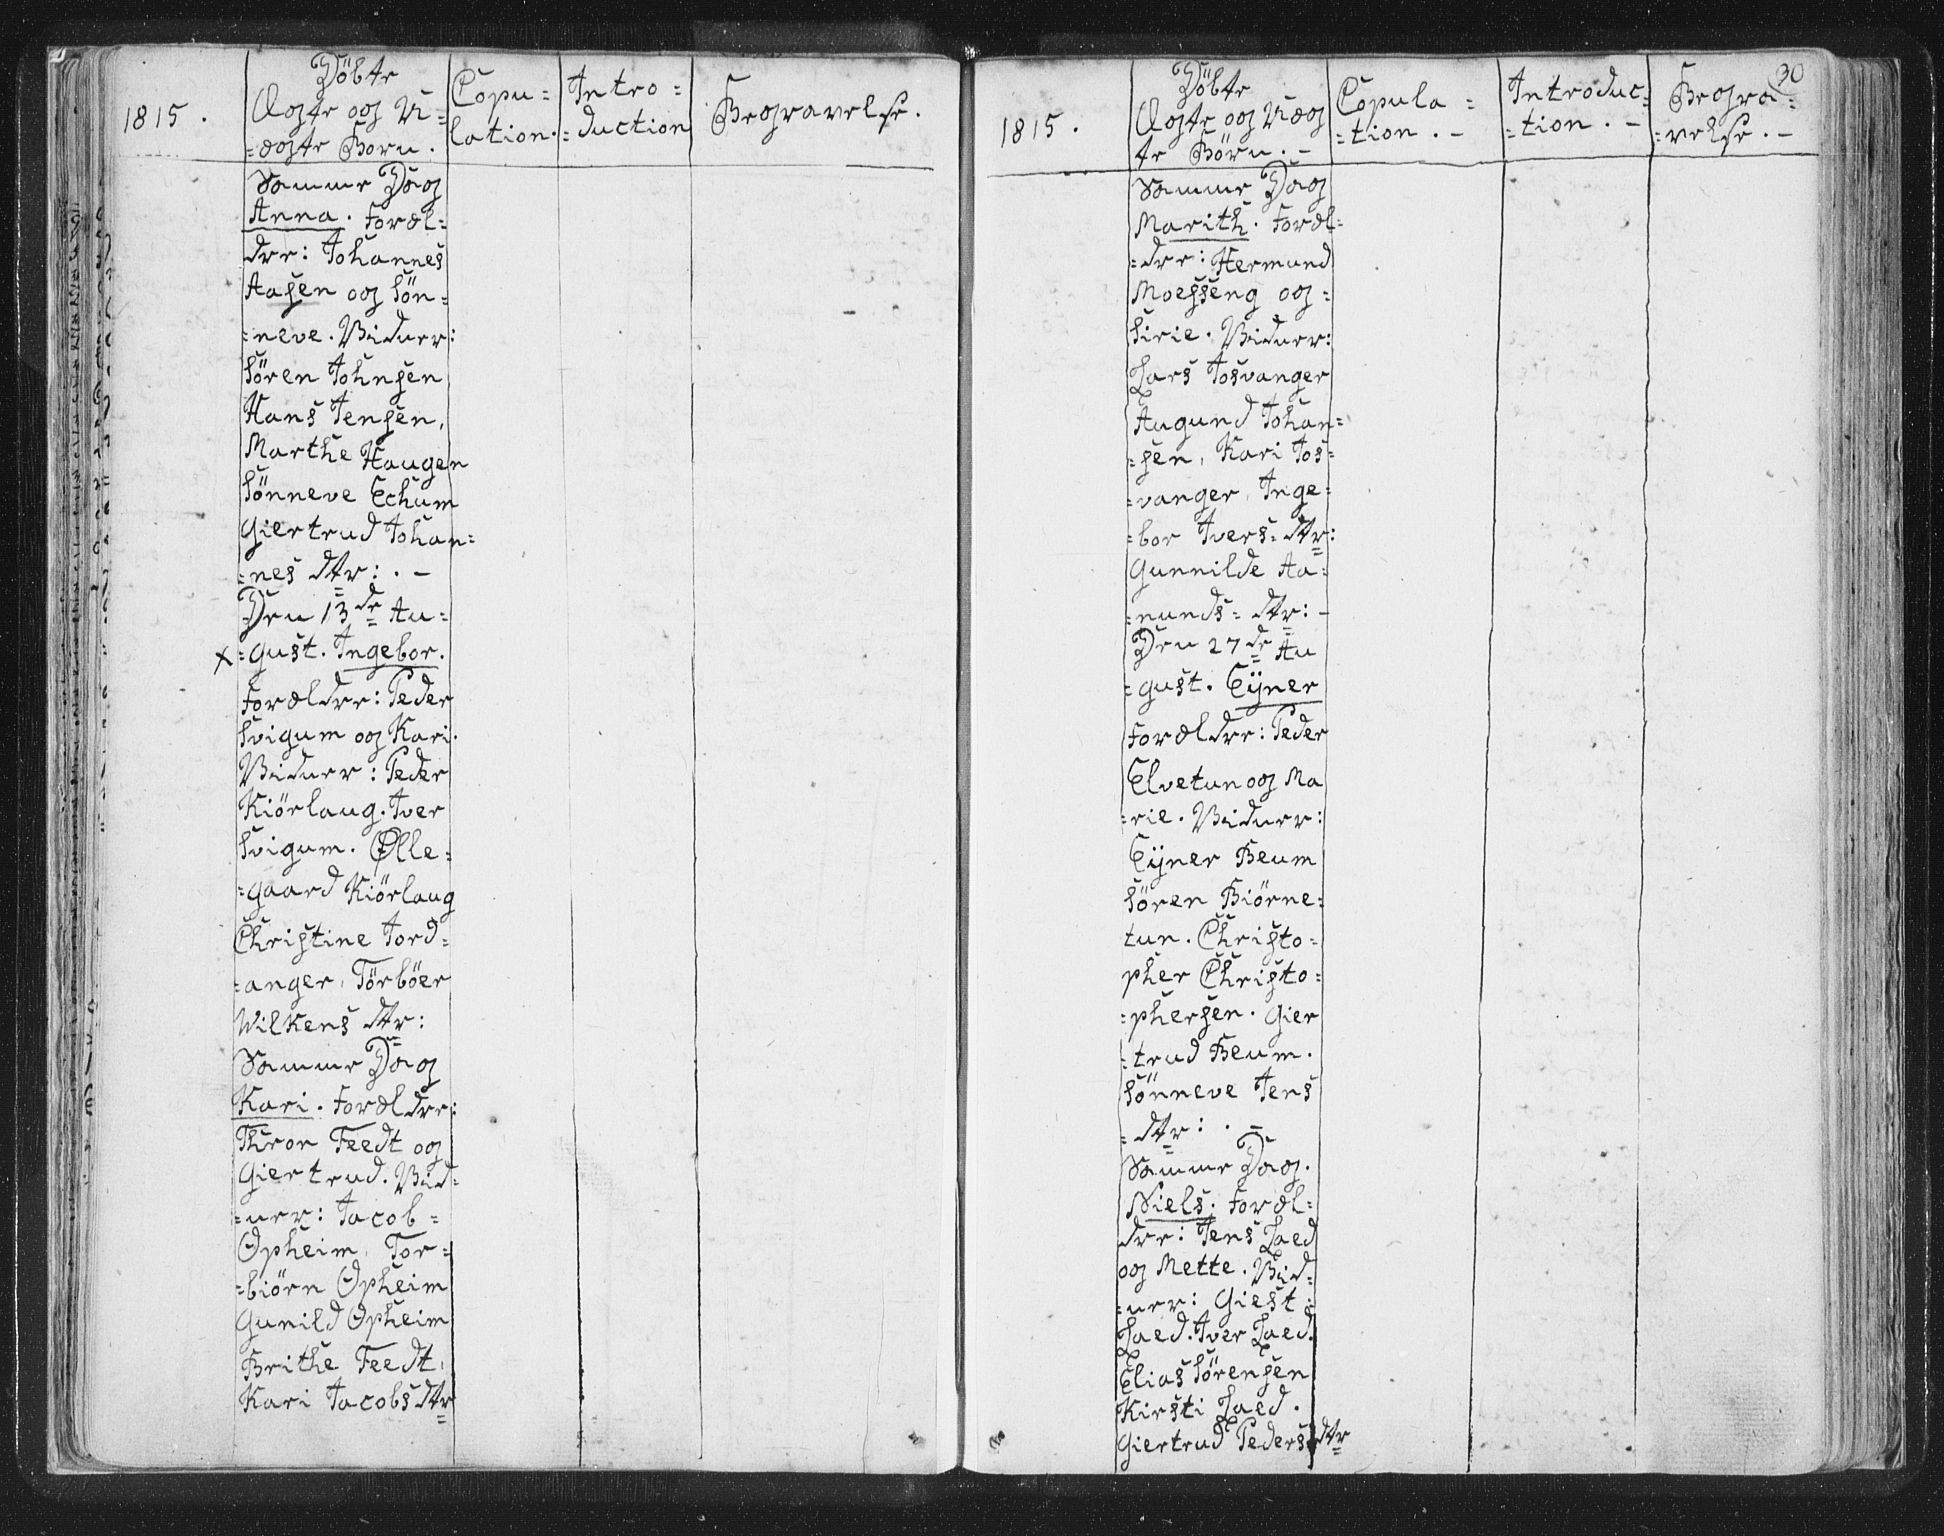 1815.
Döbte
Ægte og U=
=ægte Børn.
Copu=
lation.
Intro=
=duction
Begravelse.
Samme Dag
Anna. Foræl=
dre: Johannes
Aasen og Sön=
=neve. Vidner:
Sören Johnsen
Hans Jensen,
Marthe Haugen
Sönneve Echum
Giertrud Johan=
=nes dtr: . —
Den 13de Au=
x =gust. Ingebor.
Forældre: Peder
Svigum og Kari.
Vidner: Peder
Kiörlaug. Iver
Svigum. Olle=
=gaard Kiörlaug
Christine Jord=
=anger, Törböer
Wilkens dtr:
Samme Dag
Kari. Forældre:
Thror Feedt og
Giertrud. Vid=
=ner: Jacob=
Opheim, Tor=
=biörn Opheim
Gunild Opheim
Brithe Feedt,
Kari Jacobs dtr
30
1815.
Döbte
Ægte og Uæg
te Börn. —
Copula=
=tion. —
Introduc=
=tion. —
Begra=
=velse. —
Samme Dag
Marith. Foræl=
=dre: Hermund
Moesseng og=
Sirie. Vidner:
Lars Josvanger
Augund Johan=
=sen, Kari Jos=
=vanger, Inge=
=bor Ivers= dtr:
Gunnilde Aa=
=nunds= dtr: —
Den 27de Au
=gust. Eÿner
Forældre: Peder
Elvetun og Ma
=rie. Vidner:
Eÿner Beum
Sören Biörne=
tun. Christo=
pher Christo=
=phersen. Gier
=trud Beum.
Sönneve Jens
=dtr: . —
Samme Dag.
Niels. Foræl=
dre: Jens Laed
og Mette. Vid=
=ner: Giest
Laed. Iver Laed.
Elias Sörensen
Kirsti Laed.
Giertrud Peders dtr